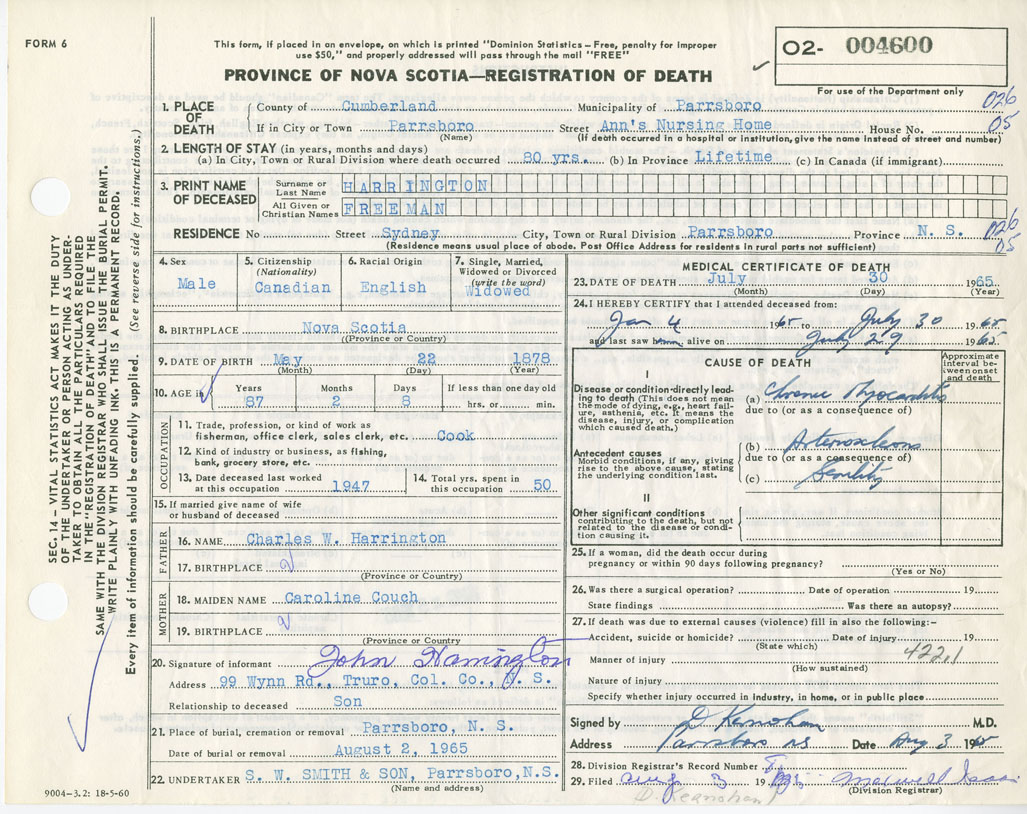 FORM 6
This form, if placed in an envelope, on which is printed "Dominion Statistics – Free, penalty for improper
use $50," and properly addressed will pass through the mail "FREE"
O2- 004600
PROVINCE OF NOVA SCOTIA—REGISTRATION OF DEATH
For use of the Department only
1. PLACE OF DEATH
County of Cumberland Municipality of Parrsboro 026
If in City or Town Parrsboro Street Ann's Nursing Home House No. 05
(Name) (If death occurred in a hospital or institution, give the name instead of street and number)
2. LENGTH OF STAY (in years, months and days)
(a) In City, Town or Rural Division where death occurred 80 yrs. (b) In Province Lifetime (c) In Canada (if immigrant)
3. PRINT NAME OF DECEASED
Surname or Last Name HARRINGTON
All Given or Christian Names FREEMAN
RESIDENCE No Street Sydney City, Town or Rural Division Parrsboro Province N. S. 026
(Residence means usual place of abode. Post Office Address for residents in rural parts not sufficient) 05
4. Sex
Male
5. Citizenship
(Nationality)
Canadian
6. Racial Origin
English
7. Single, Married,
Widowed or Divorced
(write the word)
Widowed
8. BIRTHPLACE Nova Scotia
(Province or Country)
9. DATE OF BIRTH May 22 1878
(Month) (Day) (Year)
10. AGE in
Years Months Days If less than one day old
87 2 8 hrs. or min.
OCCUPATION
11. Trade, profession, or kind of work as
fisherman, office clerk, sales clerk, etc. Cook
12. Kind of industry or business, as fishing,
bank, grocery store, etc.
13. Date deceased last worked
at this occupation 1947
14. Total yrs. spent in
this occupation 50
15. If married give name of wife
or husband of deceased
FATHER
16. NAME Charles W. Harrington
17. BIRTHPLACE
(Province or Country)
MOTHER
18. MAIDEN NAME Caroline Couch
19. BIRTHPLACE
(Province or Country)
20. Signature of informant John Harrington
Address 99 Wynn Rd., Truro, Col. Co., N. S.
Relationship to deceased Son
21. Place of burial, cremation or removal Parrsboro, N. S.
Date of burial or removal August 2, 1965
22. UNDERTAKER S. W. SMITH & SON, Parrsboro,N.S.
(Name and address)
MEDICAL CERTIFICATE OF DEATH
23. DATE OF DEATH July 30 1965
(Month) (Day) (Year)
24. I HEREBY CERTIFY that I attended deceased from:
Jan 4 1965 to July 30 1965
and last saw h alive on July 29 1965
CAUSE OF DEATH
Approximate
interval be-
tween onset
and death
I
Disease or condition directly lead-
ing to death (This does not mean
the mode of dying, e.g., heart fail-
ure, asthenia, etc. It means the
disease, injury, or complication
which caused death.)
(a) Chronic Myocarditis
due to (or as a consequence of)
Antecedent causes
Morbid condition, if any, giving
rise to the above cause, stating
the underlying condition last.
(b)
due to (or as a consequence of)
(c) Senility
II
Other significant conditions
contributing to the death, but not
related to the disease or condi-
tion causing it.
25. If a woman, did the death occur during
pregnancy or within 90 days following pregnancy?
(Yes or No)
26. Was there a surgical operation? Date of operation 19
State findings Was there an autopsy?
27. If death was due to external causes (violence) fill in also the following:–
Accident, suicide or homicide? Date of injury 19
(State which)
422.1
Manner of injury
(How sustained)
Nature of injury
Specify whether injury occurred in industry, in home, or in public place
Signed by D Kernohan M.D.
Address Parrsboro NS Date Aug 3 1965
28. Division Registrar's Record Number
29. Filed Aug 3 19 Maxwell
(Division Registrar)
D. Kernohan
SEC. 14 – VITAL STATISTICS ACT MAKES IT THE DUTY
OF THE UNDERTAKER OR PERSON ACTING AS UNDER-
TAKER TO OBTAIN ALL THE PARTICULARS REQUIRED
IN THE "REGISTRATION OF DEATH" AND TO FILE THE
SAME WITH THE DIVISION REGISTRAR WHO SHALL ISSUE THE BURIAL PERMIT.
WRITE PLAINLY WITH UNFADING INK. THIS IS A PERMANENT RECORD.
Every item of information should be carefully supplied. (See reverse side for instructions.)
9004–3.2: 18-5-60